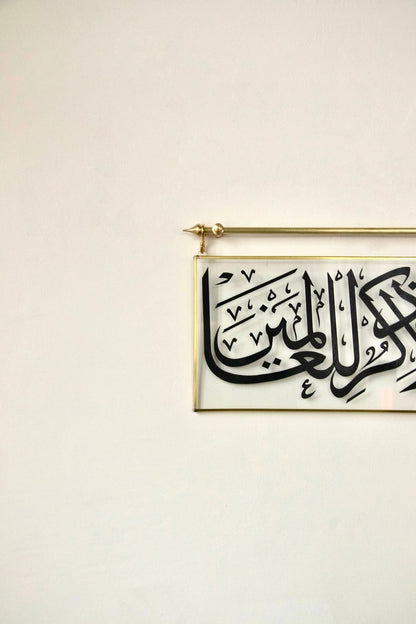 ذكر للعالمين